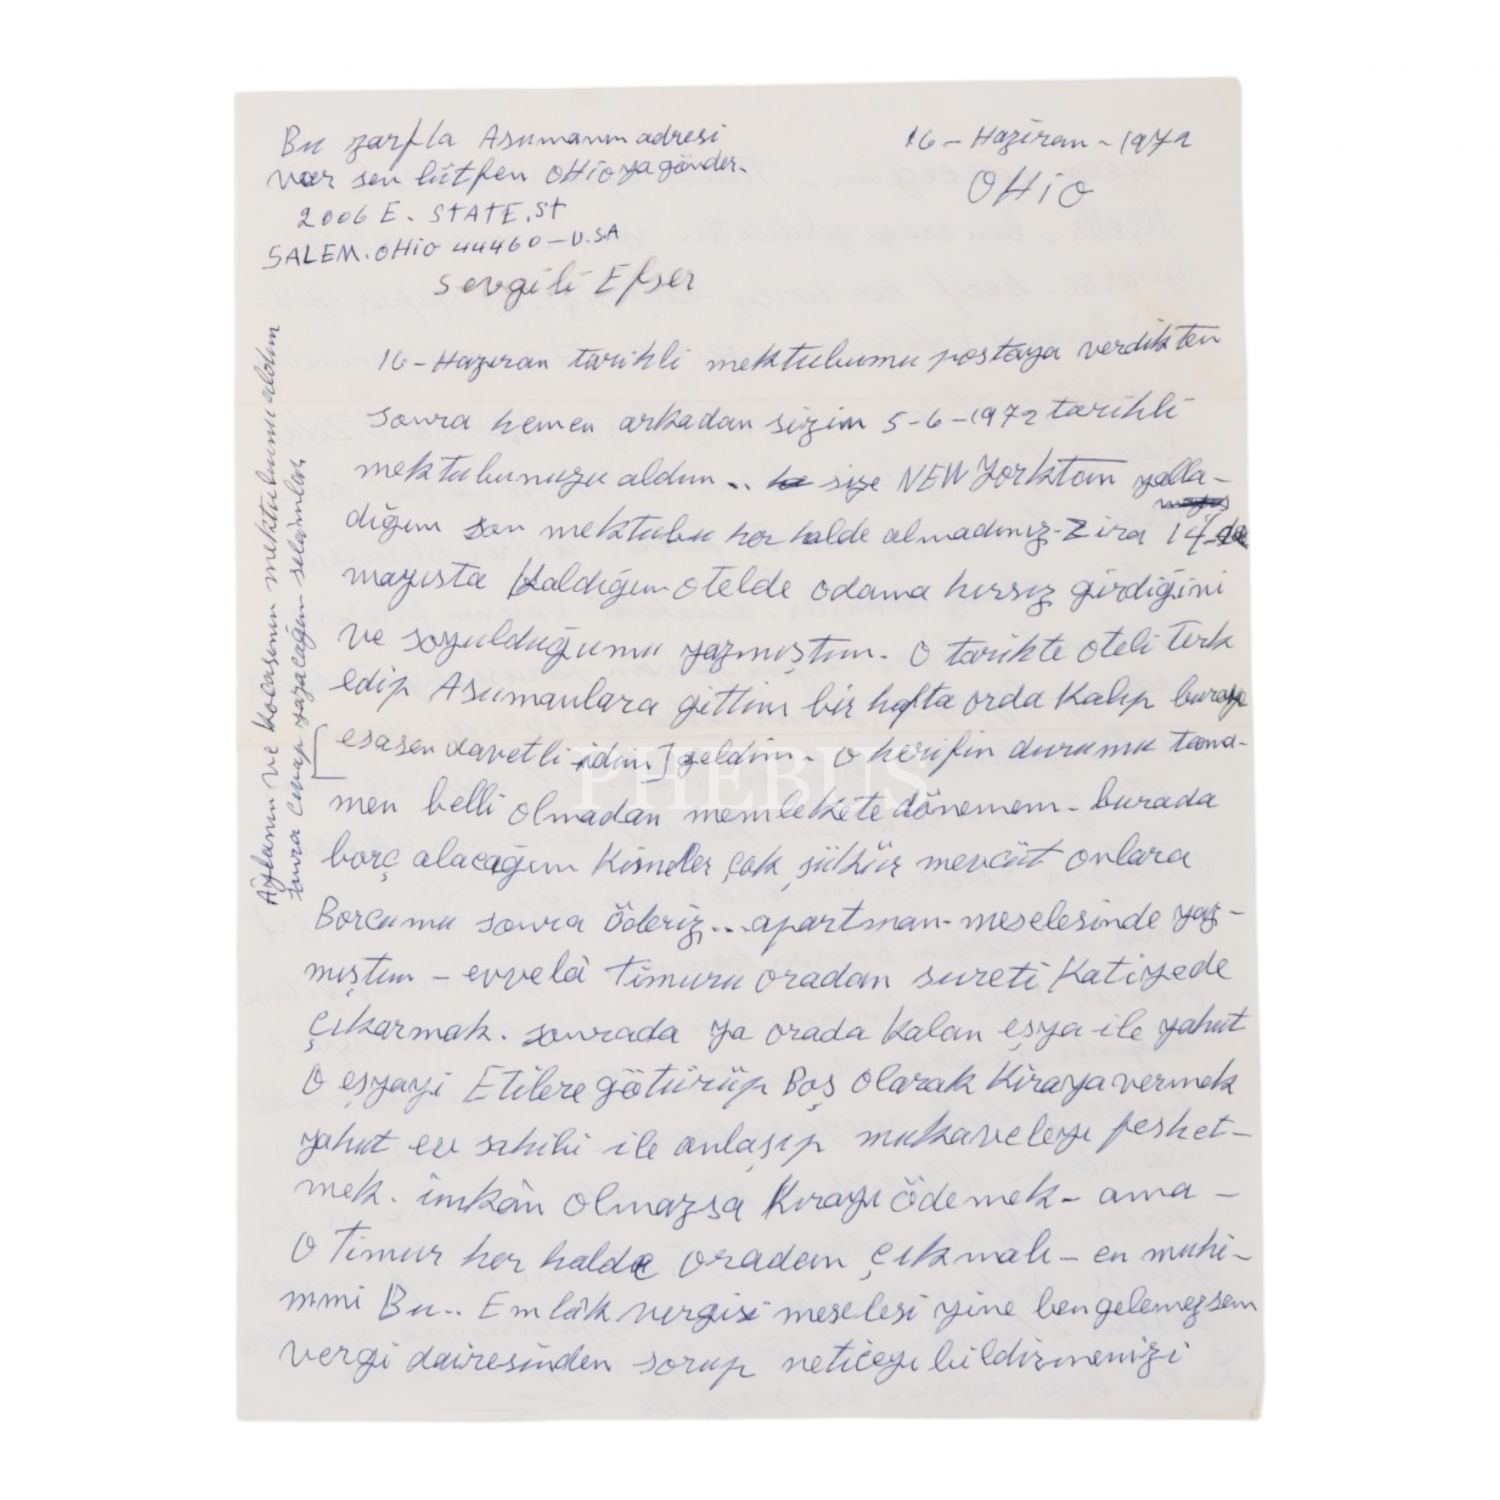 Bu zarfla Asumanın adresi
var sen lütfen OHioya gönder.
2006 E. STATE. St
SALEM. OHiO 44460 - U.S.A
16 - Haziran - 1972
OHiO
Sevgili Efser
16 - Haziran tarihli mektubumu postaya verdikten
sonra hemen arkadan sizin 5-6-1972 tarihli
mektubunuzu aldım.. size NEW Yorktan yolla-
dığım son mektubu her halde almadınız - Zira 14 de
mayısta Kaldığım otelde odama hırsız girdiğini
ve soyulduğumu yazmıştım. O tarihte oteli terk
edip Asumanlara gittim bir hafta orda Kalıp buraya
[esasen davetli idim] geldim. O herifin durumu tama-
men belli olmadan memlekete dönemem - burada
borç alacağım Kimseler çok şükür mevcüt onlara
Borcumu sonra öderiz... apartman - meselesinde yaz-
mıştım - evvelâ Timuru oradan sureti Katiyede
çıkarmak. sonrada ya orada Kalan eşya ile yahut
O eşyayi Etilere götürüp Boş olarak Kiraya vermek
yahut ev sahibi ile anlaşıp mukaveleyi feshet-
mek. imkân olmazsa Kirayı ödemek - ama -
O Timur her halde oradan çıkmalı - en muhi-
mmi Bu.. Emlâk vergisi meselesi yine ben gelemezsem
vergi dairesinden sorup neticeyi bildirmenizi
Aylanın ve Kocasının mektubunu aldım
sonra cevap yazacağım selâmlar
PHEBUS